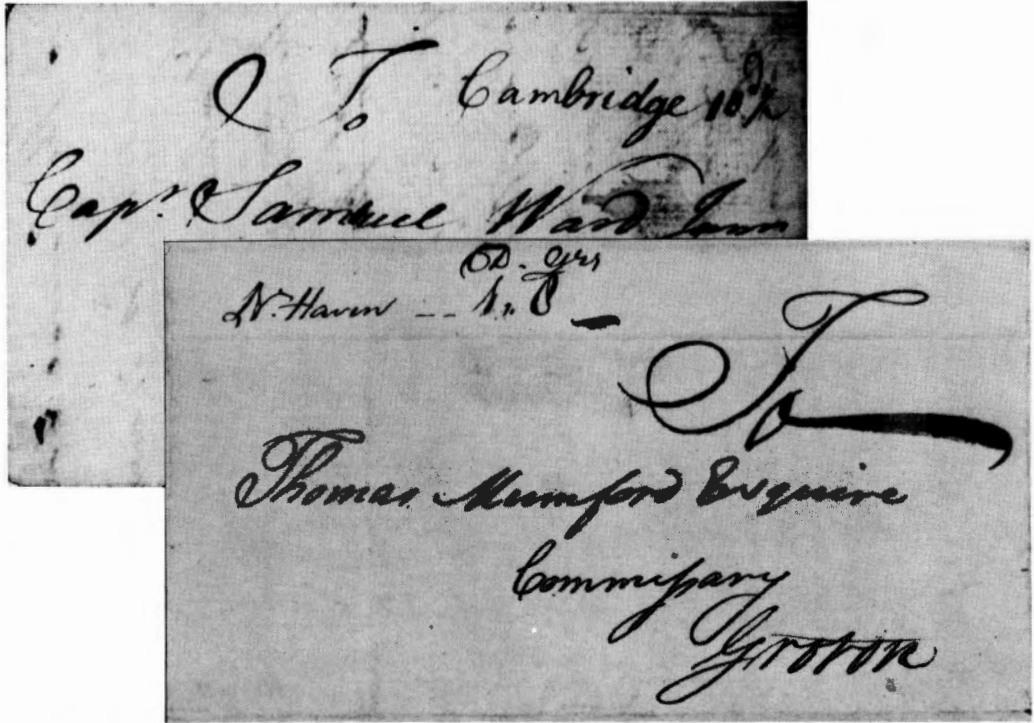 To Cambridge 10d/2
Capt. Samuel Ward Junr
DD. Grs
N. Haven -- 1,, 8
To
Thomas Mumford Esquire
Commissary
Groton